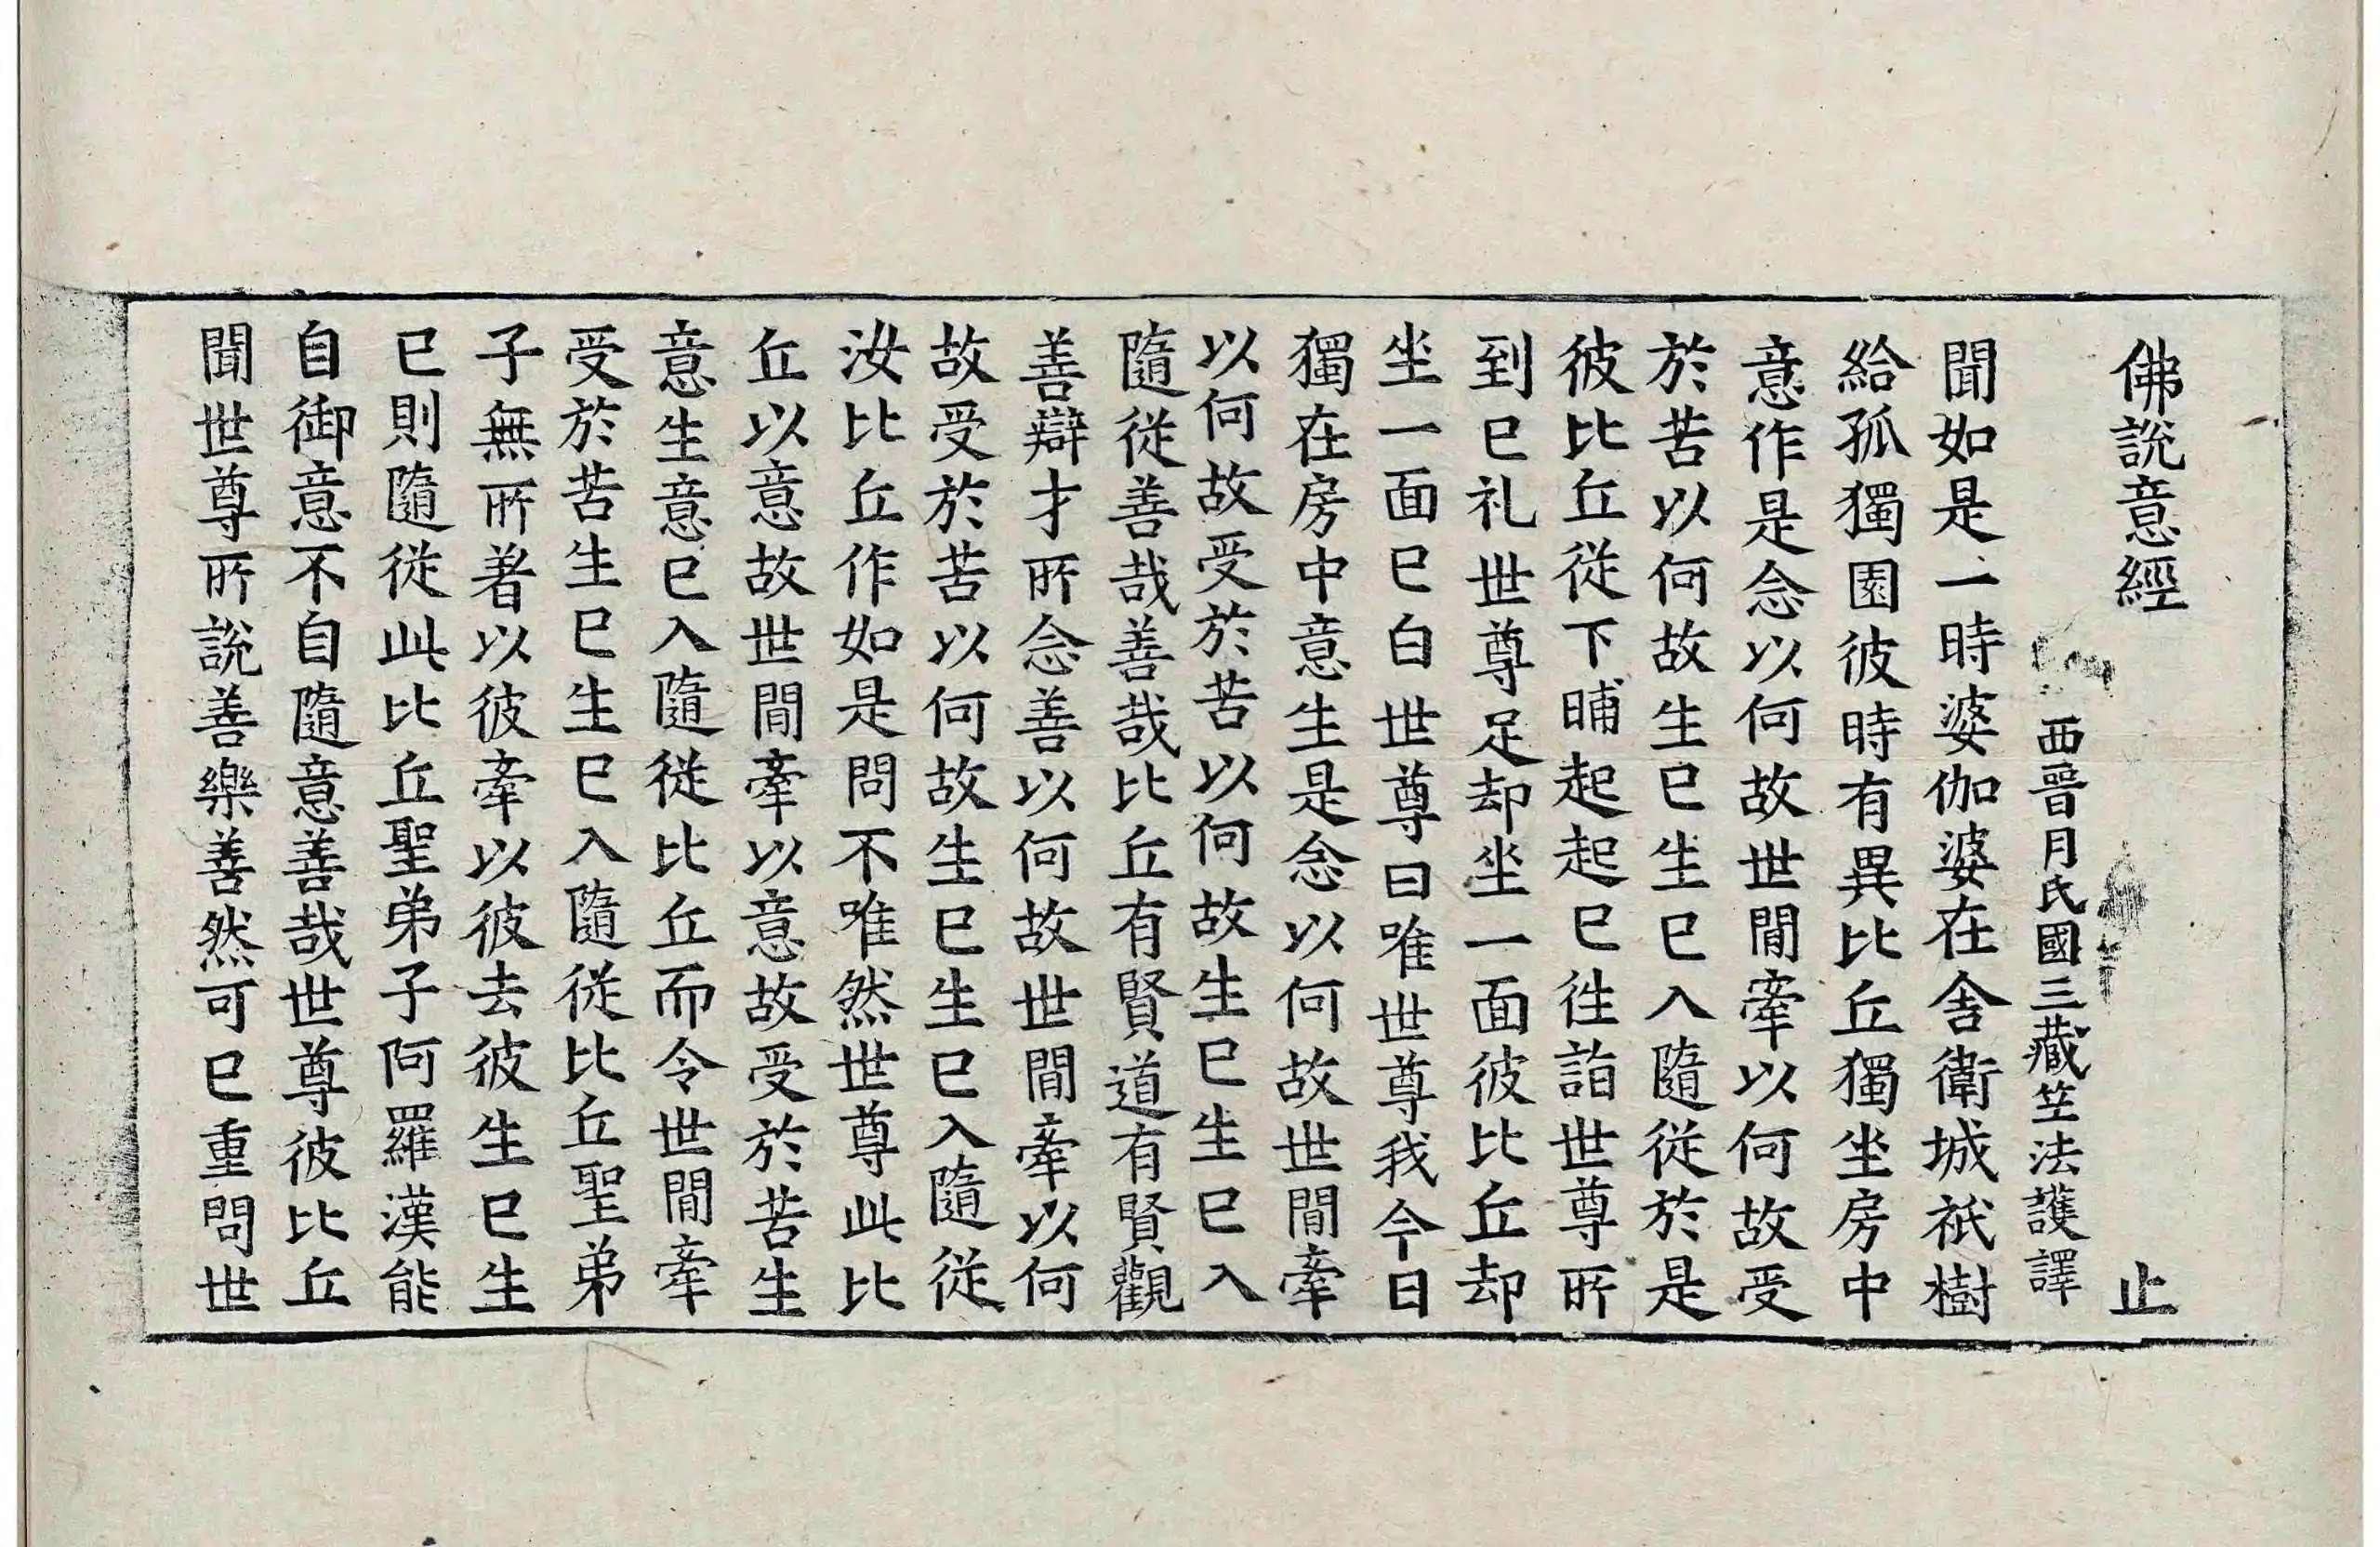 佛說意經 止
西晉月氏國三藏竺法護譯
聞如是一時婆伽婆在舍衛城祇樹
給孤獨園彼時有異比丘獨坐房中
意作是念以何故世閒牽以何故受
於苦以何故生已生已入隨從於是
彼比丘從下晡起起已往詣世尊所
到已礼世尊足却坐一面彼比丘却
坐一面已白世尊曰唯世尊我今日
獨在房中意生是念以何故世閒牽
以何故受於苦以何故生已生已入
隨從善哉善哉比丘有賢道有賢觀
善辯才所念善以何故世閒牽以何
故受於苦以何故生已生已入隨從
汝比丘作如是問不唯然世尊此比
丘以意故世閒牽以意故受於苦生
意生意已入隨從比丘而令世閒牽
受於苦生已生已入隨從比丘聖弟
子無所著以彼牽以彼去彼生已生
已則隨從此比丘聖弟子阿羅漢能
自御意不自隨意善哉世尊彼比丘
聞世尊所說善樂善然可已重問世